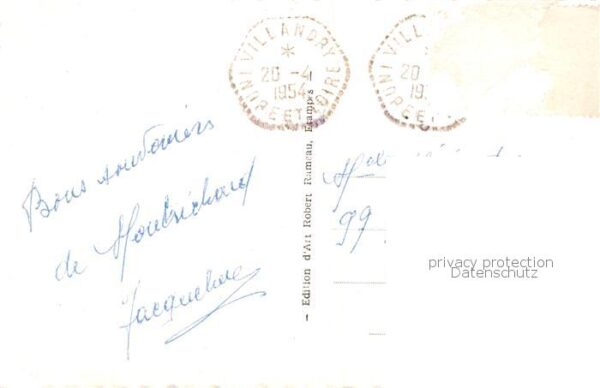 VILLANDRY
*
20 -4
1954
INDRE ET LOIRE
VILLANDRY
20
INDRE ET
Bons souvenirs
de Montrichard
Jacqueline
— Edition d'Art Robert Rameau, Etampes —
99
privacy protection
Datenschutz